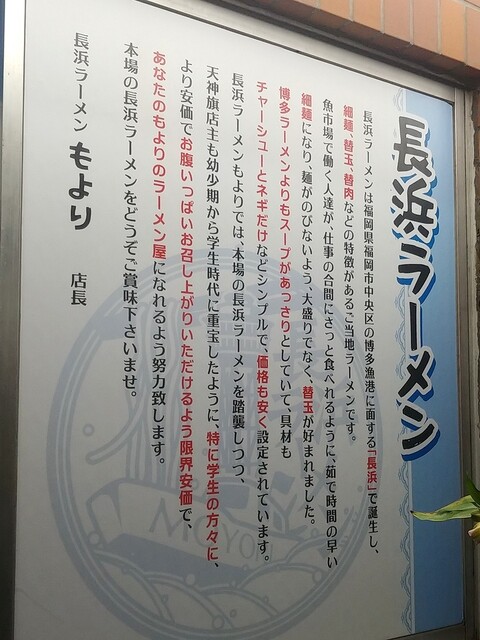 長浜ラーメン
長浜ラーメンは福岡県福岡市中央区の博多漁港に面する「長浜」で誕生し、
細麺、替玉、替肉などの特徴があるご当地ラーメンです。
魚市場で働く人達が、仕事の合間にさっと食べれるように、茹で時間の早い
細麺になり、麺がのびないよう、大盛りでなく、替玉が好まれました。
博多ラーメンよりもスープがあっさりとしていて、具材も
チャーシューとネギだけなどシンプルで、価格も安く設定されています。
長浜ラーメンもよりでは、本場の長浜ラーメンを踏襲しつつ、
天神旗店主も幼少期から学生時代に重宝したように、特に学生の方々に、
より安価でお腹いっぱいお召し上がりいただけるよう限界安価で、
あなたのもよりのラーメン屋になれるよう努力致します。
本場の長浜ラーメンをどうぞご賞味下さいませ。
長浜ラーメン もより 店長